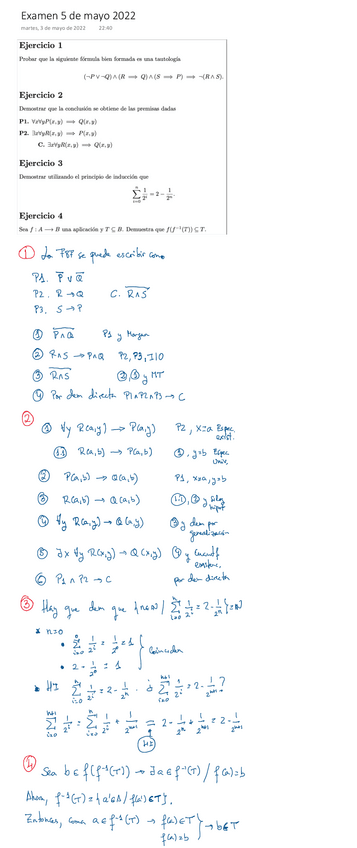 Examen 5 de mayo 2022
martes, 3 de mayo de 2022 22:40
Ejercicio 1
Probar que la siguiente fórmula bien formada es una tautología
(¬P ∨ ¬Q) ∧ (R ⟹ Q) ∧ (S ⟹ P) ⟹ ¬(R ∧ S).
Ejercicio 2
Demostrar que la conclusión se obtiene de las premisas dadas
P1. ∀x∀yP(x, y) ⟹ Q(x, y)
P2. ∃x∀yR(x, y) ⟹ P(x, y)
C. ∃x∀yR(x, y) ⟹ Q(x, y)
Ejercicio 3
Demostrar utilizando el principio de inducción que
∑ᵢ₌₀ⁿ 1/2ⁱ = 2 − 1/2ⁿ.
Ejercicio 4
Sea f : A ⟶ B una aplicación y T ⊆ B. Demuestra que f(f⁻¹(T)) ⊆ T.
① La FBF se puede escribir como
P1. P̅ ∨ Q̅
P2. R → Q C. R̅∧̅S̅
P3. S → P
① P̅∧̅Q̅ P1 y Morgan
② R∧S → P∧Q P2, P3,
③ R̅∧̅S̅ ②,① y MT
④ Por dem directa P1∧P2∧P3 → C
②
① ∀y R(a,y) → P(a,y) P2, x=a Espec. exist.
①.1 R(a,b) → P(a,b) ①, y=b Espec univ.
② P(a,b) → Q(a,b) P1, x=a, y=b
③ R(a,b) → Q(a,b) ①.1, ② y Silog hipot
④ ∀y R(a,y) → Q(a,y) ③ y dem por generalización
⑤ ∃x ∀y R(x,y) → Q(x,y) ④ y
⑥ P1 ∧ P2 → C por dem directa
③ Hay que dem que {n∈ℕ / ∑ᵢ₌₀ⁿ 1/2ⁱ = 2 - 1/2ⁿ} = ℕ
* n=0
• ∑ᵢ₌₀⁰ 1/2ⁱ = 1/2⁰ = 1
• 2 - 1/2⁰ = 1 } Coinciden
* HI ∑ᵢ₌₀ⁿ 1/2ⁱ = 2 - 1/2ⁿ. ¿ ∑ᵢ₌₀ⁿ⁺¹ 1/2ⁱ = 2 - 1/2ⁿ⁺¹ ?
∑ᵢ₌₀ⁿ⁺¹ 1/2ⁱ = ∑ᵢ₌₀ⁿ 1/2ⁱ + 1/2ⁿ⁺¹ = 2 - 1/2ⁿ + 1/2ⁿ⁺¹ = 2 - 1/2ⁿ⁺¹
HI
4 Sea b ∈ f(f⁻¹(T)) → ∃a ∈ f⁻¹(T) / f(a)=b
Ahora, f⁻¹(T) = {a'∈A / f(a') ∈ T}.
Entonces, como a ∈ f⁻¹(T) → f(a) ∈ T
f(a)=b } → b∈T